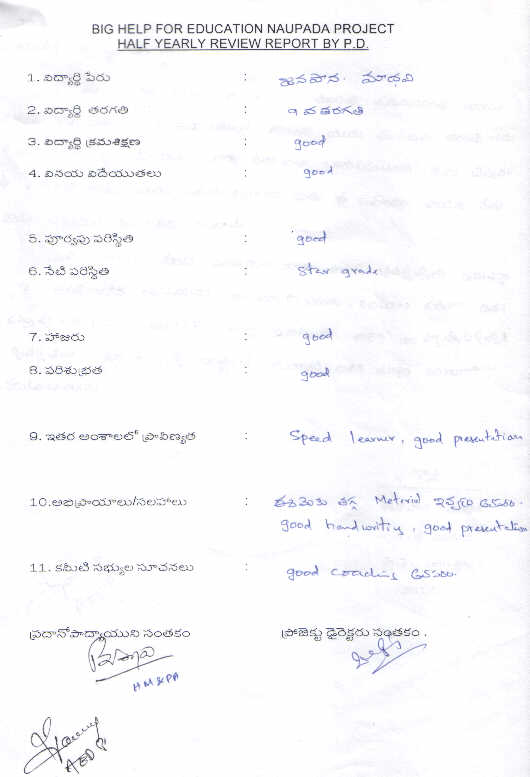 BIG HELP FOR EDUCATION NAUPADA PROJECT
HALF YEARLY REVIEW REPORT BY P.D.
1. విద్యార్థి పేరు : మాధవి
2. విద్యార్థి తరగతి : 9 వ తరగతి
3. విద్యార్థి క్రమశిక్షణ : good
4. వినయ విదేయుతలు : good
5. పూర్వపు పరిస్థితి : good
6. నేటి పరిస్థితి : Star grade
7. హాజరు : good
8. పరిశుభ్రత : good
9. ఇతర అంశాలలో ప్రావిణ్యత : Speed learner, good presentation
10. అభిప్రాయాలు/సలహాలు : Meterial
good handwriting, good presentation
11. కమిటి సభ్యుల సూచనలు : good coaching
ప్రదానోపాద్యాయుని సంతకం ప్రాజెక్టు డైరెక్టరు సంతకం .
HM & PA